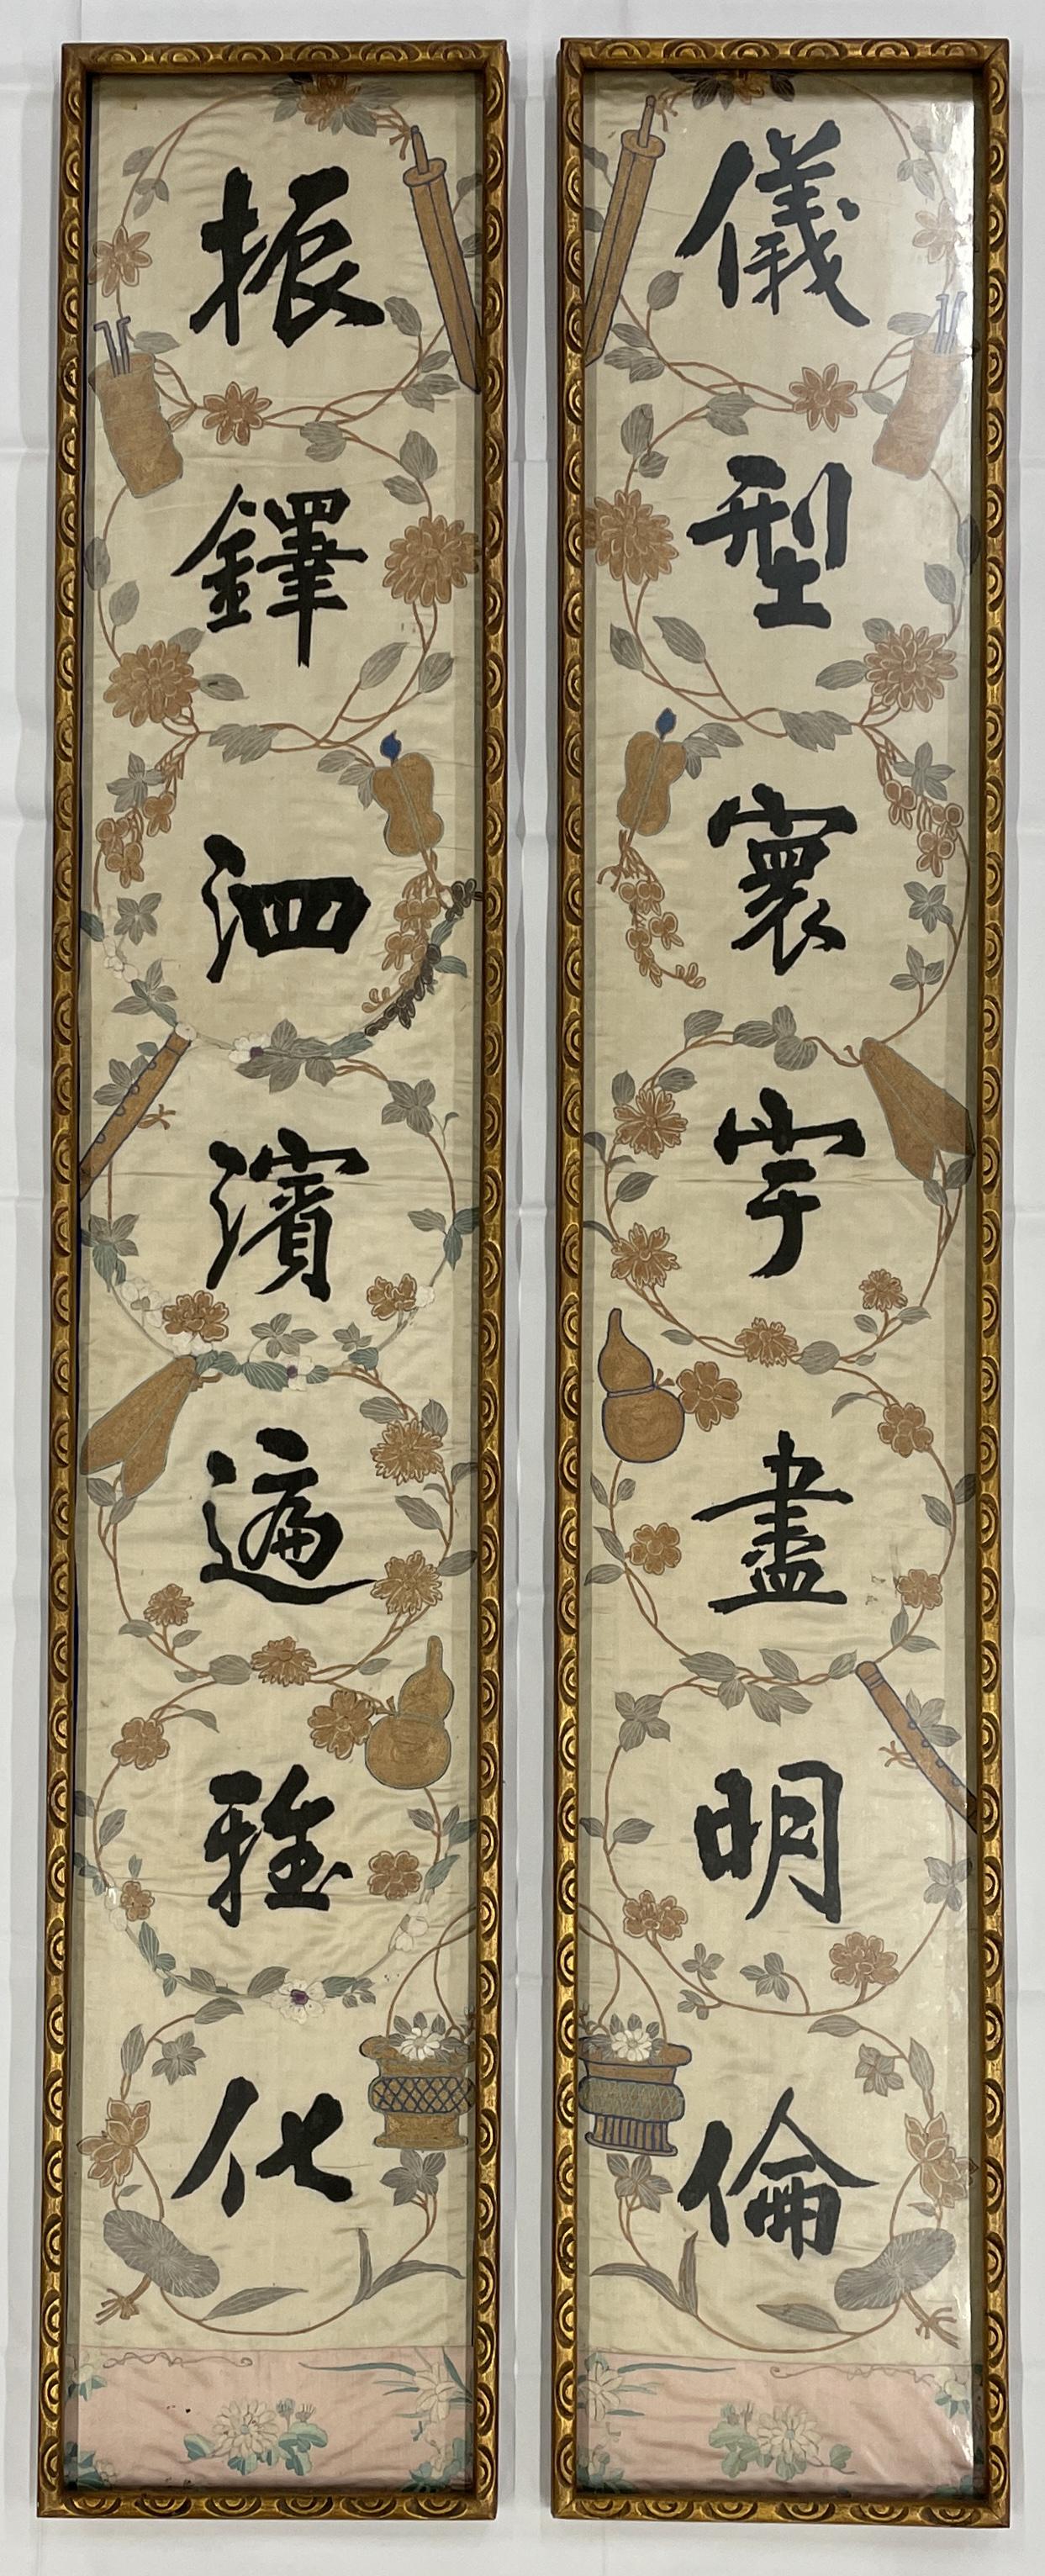 儀型寰宇盡明倫
振鐸泗濱遍雅化